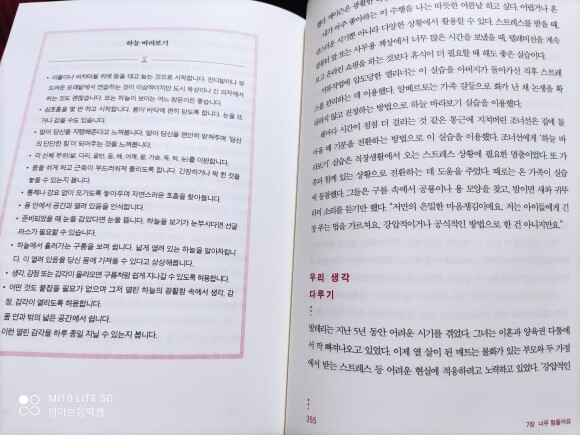 하늘 바라보기
• 이불이나 비치타월 위에 등을 대고 눕는 것으로 시작합니다. 잔디밭이나 부
드러운 모래밭에서 연습하는 것이 이상적이지만 도시 옥상이나 긴 의자에서
하는 것도 괜찮습니다. 또는 하늘이 보이는 어느 창문이든 좋습니다.
• 심호흡을 몇 번 하고 시작합니다. 몸이 바닥에 편히 닿도록 합니다. 눈을 뜨
거나 감을 수도 있습니다.
• 땅이 당신을 지탱해준다고 느껴봅니다. 땅이 당신을 편안히 받쳐주며 '당신
의 단단한 힘'이 되어주는 것을 느껴봅니다.
• 각 신체 부위(발, 다리, 골반, 등, 배, 어깨, 팔, 가슴, 목, 턱, 눈)를 이완합니다.
• 몸을 쉬게 하고 근육이 부드러워져 풀리도록 합니다. 긴장하거나 꽉 쥔 것을
놓을 수 있는지 봅니다.
• 통제나 강요 없이 오가도록 놓아두며 자연스러운 호흡을 찾아봅니다.
• 몸 안에서 공간과 열려 있음을 인식합니다.
• 준비되었을 때 눈을 감았다면 눈을 뜹니다. 하늘을 보기가 눈부시다면 선글
라스가 필요할 수 있습니다.
• 하늘에서 흘러가는 구름을 보며 쉽니다. 넓게 열려 있는 하늘을 알아차립니
다. 이 열려 있음을 당신 몸에 가져올 수 있다고 상상해봅니다.
• 생각, 감정 또는 감각이 올라오면 구름처럼 쉽게 지나갈 수 있도록 허용합니다.
• 어떤 것도 붙잡을 필요가 없으며 그저 열린 하늘의 광활한 속에서 생각, 감
정, 감각이 열리도록 허용합니다.
• 몸 안과 밖의 넓은 공간에서 쉽니다.
이런 열린 감각을 하루 종일 지닐 수 있는지 봅니다.
MI 10 LITE 5G
엄마는음악쌤
내가 아주 좋아하는 이 수행을 나는 따뜻한 여름날 하고 싶다. 어렵거나 힘
스러운 시기뿐 아니라 다양한 상황에서 활용할 수 있다. 스트레스를 받을 때,
컴퓨터 앞 또는 사무용 책상에서 너무 많은 시간을 보냈을 때, 텔레비전을 계속
보고 온라인 쇼핑을 하는 것보다 휴식이 더 필요할 때 해도 좋은 실습이다.
서류작업에 압도당한 엘리너는 이 실습을 아버지가 돌아가신 직후 스트레
스를 관리하는 데 이용했다. 알베르토는 가족 갈등으로 화가 난 채 논쟁을 확
대하지 않고 진정하는 방법으로 하늘 바라보기 실습을 이용했다.
해마다 시간이 점점 더 걸리는 것 같은 통근에 지겨버린 조너선은 집에 돌
아올 때 기분을 전환하는 방법으로 이 실습을 이용했다. 조너선에게 '하늘 바
라보기' 실습은 직장생활에서 오는 스트레스 상황에 필요한 멈춤이었다. 또 가
족과 함께 있는 상황으로 전환하는 데 도움을 주었다. 때로는 온 가족이 실습
에 동참했다. 그들은 구름 속에서 공룡이나 용 모양을 찾고, 밤이면 새와 귀뚜
라미 소리를 듣기만 했다. "저만의 은밀한 마음챙김이에요. 저는 아이들에게 긴
장 푸는 법을 가르쳐요. 강압적이거나 공식적인 방법으로 한 건 아니지만요."
우리 생각
다루기
발레리는 지난 5년 동안 어려운 시기를 겪었다. 그녀는 이혼과 양육권 다툼에
서 막 빠져나오고 있었다. 이제 열 살이 된 매트는 불화가 있는 부모와 두 가정
에서 받는 스트레스 등 어려운 현실에 적응하려고 노력하고 있었다. '강압적인
355
7장 너무 힘들어요